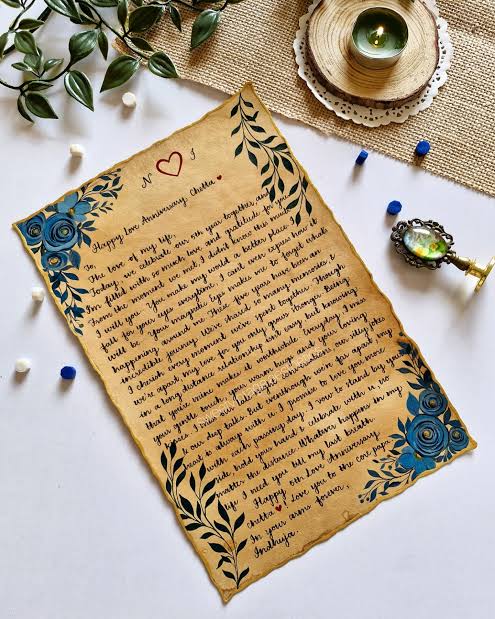 N ♡ I
Happy Love Anniversary Chetta ♥
To,
The love of my life,
Today, we celebrate our 5th year together and
I'm filled with so much love and gratitude for you.
From the moment we met, I didn't know this much
I will you. You make my world a better place. I
fall for your eyes everytime. I can't ever express how it
will be. Your magical eyes makes me to forget what
happening around me. These five years have been an
incredible journey. We've shared so many memories &
I cherish every moment we've spent together. Though
we're apart my love for you only grows stronger. Being
in a long distance relationship isn't easy but knowing
that you're mine makes it worthwhile. Everyday I miss
your gentle touch, your warm hugs and your loving
I miss our late night conversations, our silly jokes
& our deep talks. But even though we're far apart my
is always with u. I promise to love you more
with each passing day. I vow to stand by
side, hold your hand & celebrate with u no
matter the distance. Whatever happens in my
life I need you till my last breath.
Happy 5th Love Anniversary
Chetta ♥ I love you to the core papa
In your arms forever,
Indhuja.